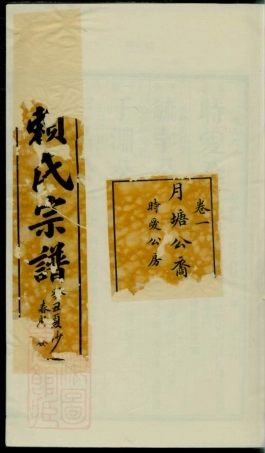 卷一
月塘公裔
時愛公房
賴氏宗譜
丑夏